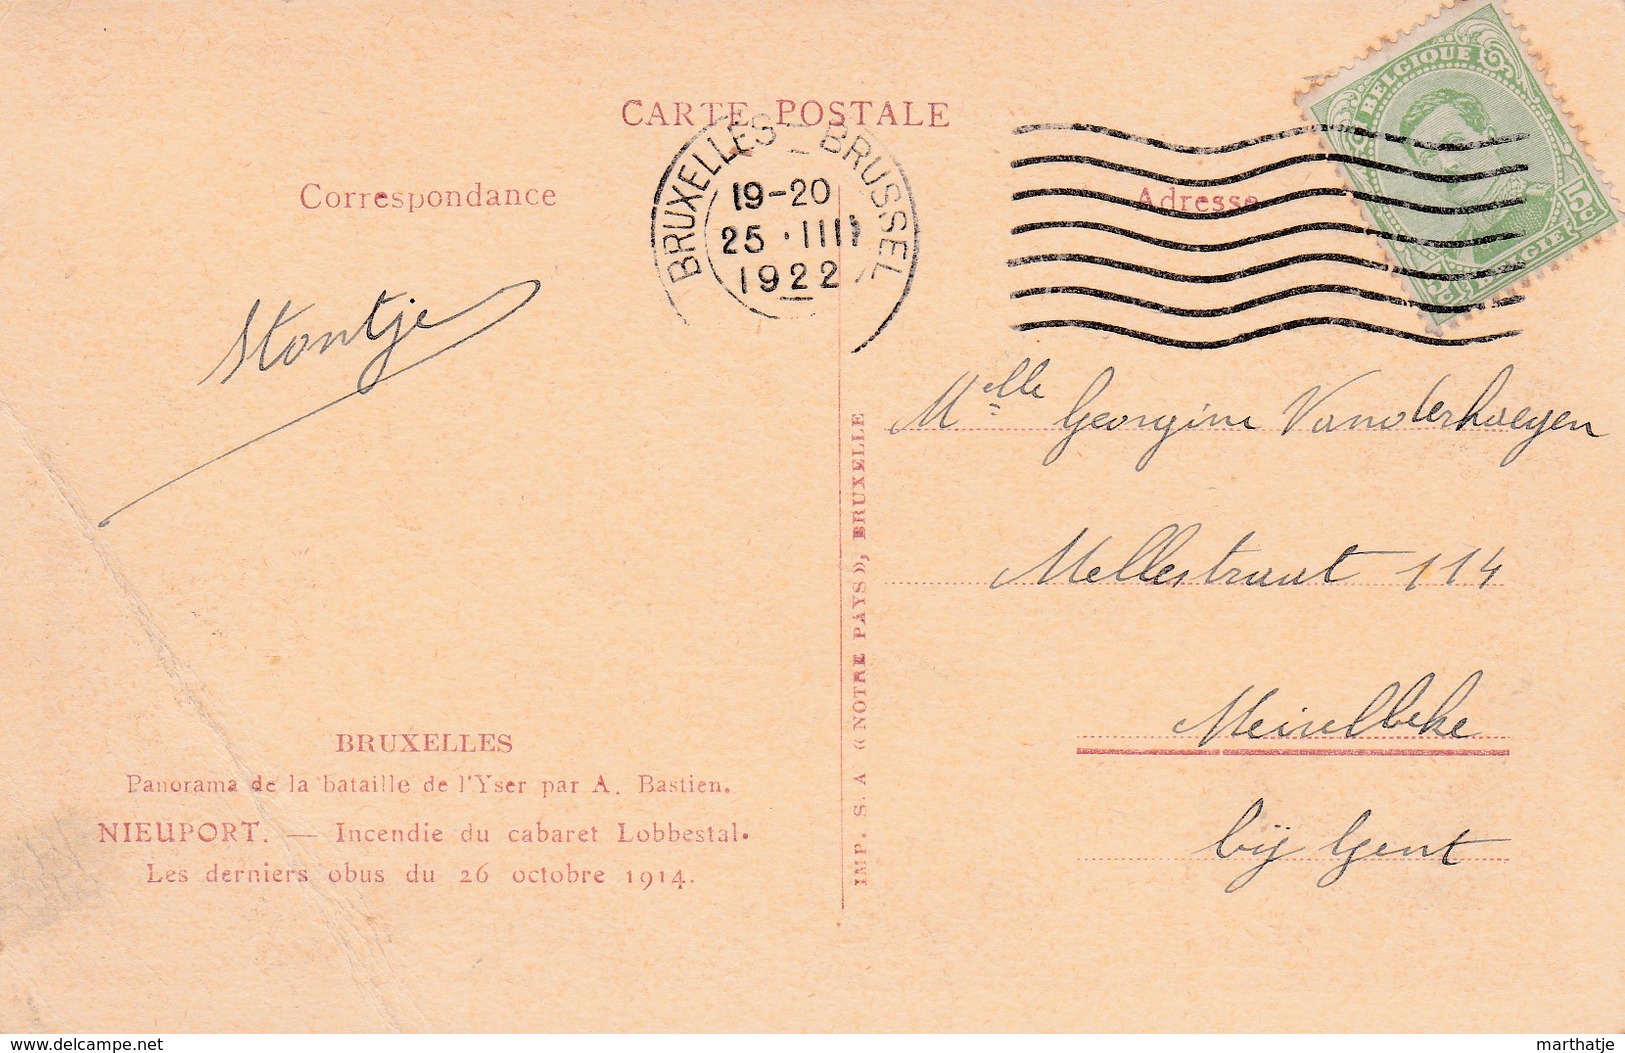 CARTE POSTALE
Correspondance
Adresse
BRUXELLES – BRUSSEL
19-20
25 · III
1922
BELGIQUE
5c
BELGIE
Stontje
Melle Georgine Vanderhaegen
Mellestraat 114
Meirelbeke
bij Gent
BRUXELLES
Panorama de la bataille de l'Yser par A. Bastien.
NIEUPORT. — Incendie du cabaret Lobbestal.
Les derniers obus du 26 octobre 1914.
IMP. S. A « NOTRE PAYS », BRUXELLE
www.delcampe.net
marthatje